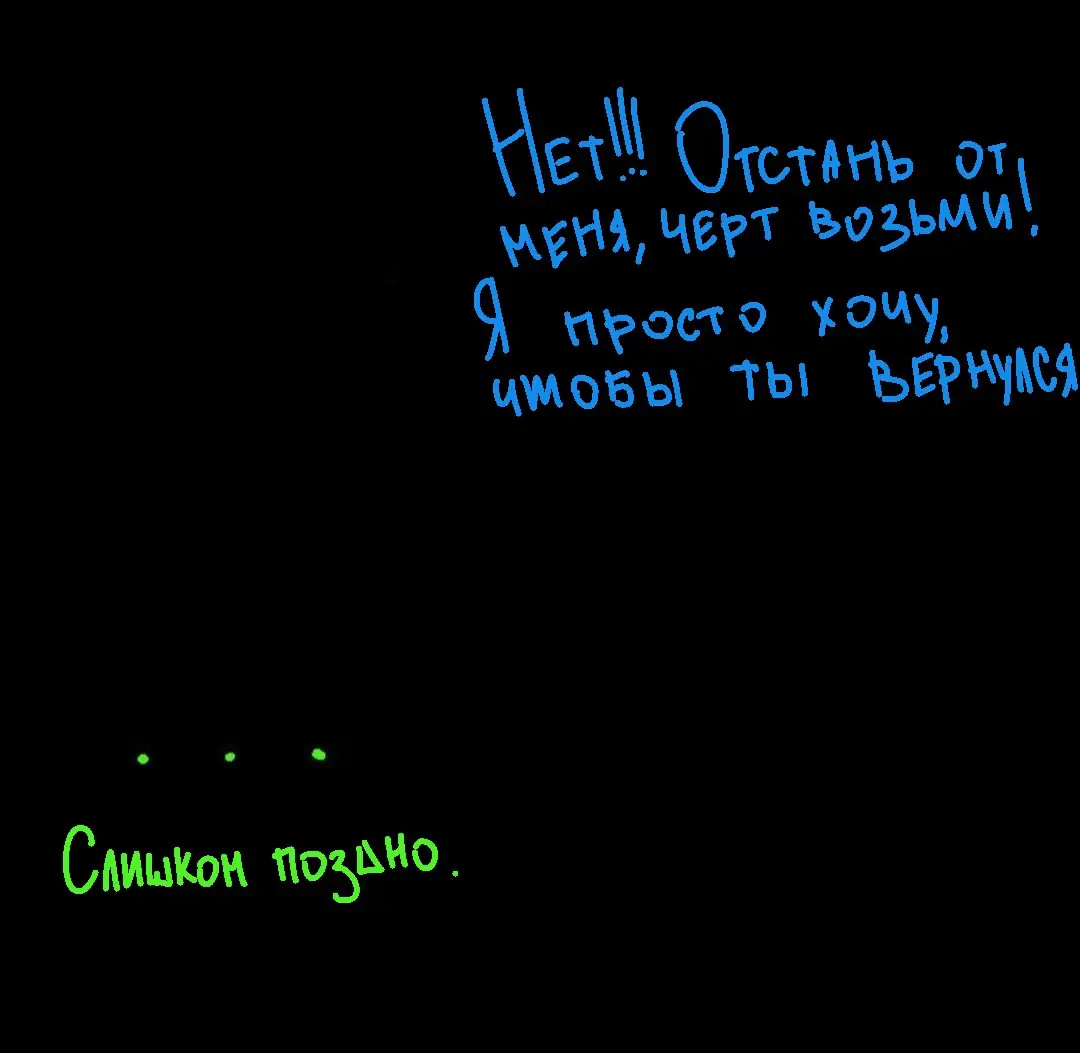 Нет!!! Отстань от
меня, черт возьми!
Я просто хочу,
чтобы ты вернулся
. . .
Слишком поздно.